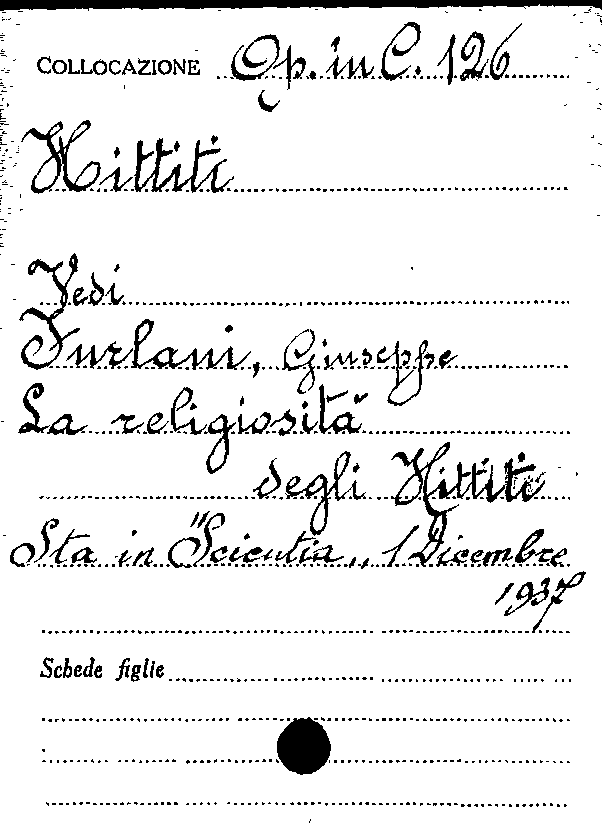 COLLOCAZIONE Op. in C. 126
Hittiti
Vedi
Furlani, Giuseppe
La religiosità
degli Hittiti
Sta in "Scientia„ 1 Dicembre
1937
Schede figlie